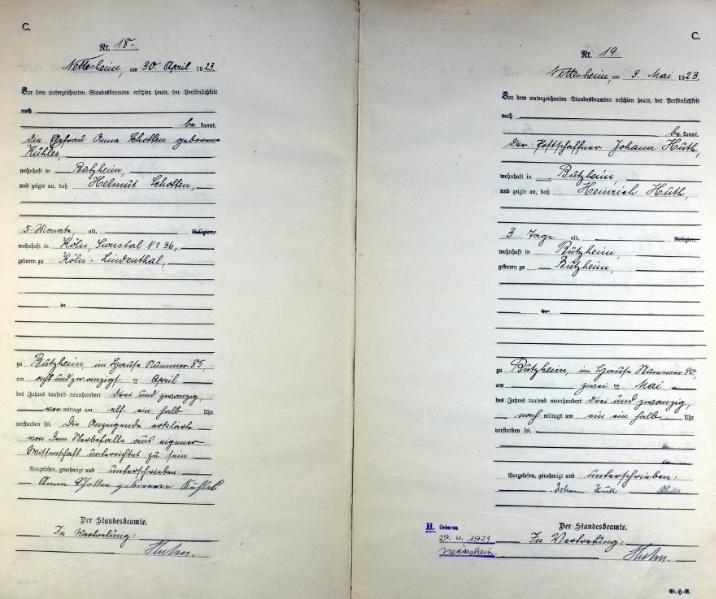 C.
Nr. 18.
Nettesheim, am 30. April 1923.
Vor dem unterzeichneten Standesbeamten erschien heute, der Persönlichkeit
nach
be kannt,
die Ehefrau Anna Schotten geborene
wohnhaft in Butzheim,
und zeigte an, daß Helmut Schotten,
5 Monate, alt, Religion,
wohnhaft in Köln, No 36,
geboren zu Köln-Lindenthal,
zu Butzheim, im Hause Nummer 85,
am acht und zwanzigsten April
des Jahres tausend neunhundert drei und zwanzig,
vor mittags um elf ein halb Uhr
verstorben sei. Die Anzeigende erklärte
von dem Sterbefalle aus eigener
Wissenschaft unterrichtet zu sein
Vorgelesen, genehmigt und unterschrieben:
Anna Schotten geborene
Der Standesbeamte.
In Vertretung:
C.
Nr. 19
Nettesheim, am 3. Mai 1923
Vor dem unterzeichneten Standesbeamten erschien heute, der Persönlichkeit
nach
be kannt,
der Postschaffner Johann Huth,
wohnhaft in Butzheim,
und zeigte an, daß Heinrich Huth,
3 Tage alt, Religion,
wohnhaft in Butzheim,
geboren zu Butzheim,
zu Butzheim, im Hause Nummer 90,
am zwei ten Mai
des Jahres tausend neunhundert drei und zwanzig,
nach mittags um ein ein halb Uhr
verstorben sei.
Vorgelesen, genehmigt und unterschrieben:
Johann Huth
H. Geboren
29. 4. 1923
Nettesheim
Der Standesbeamte.
In Vertretung: